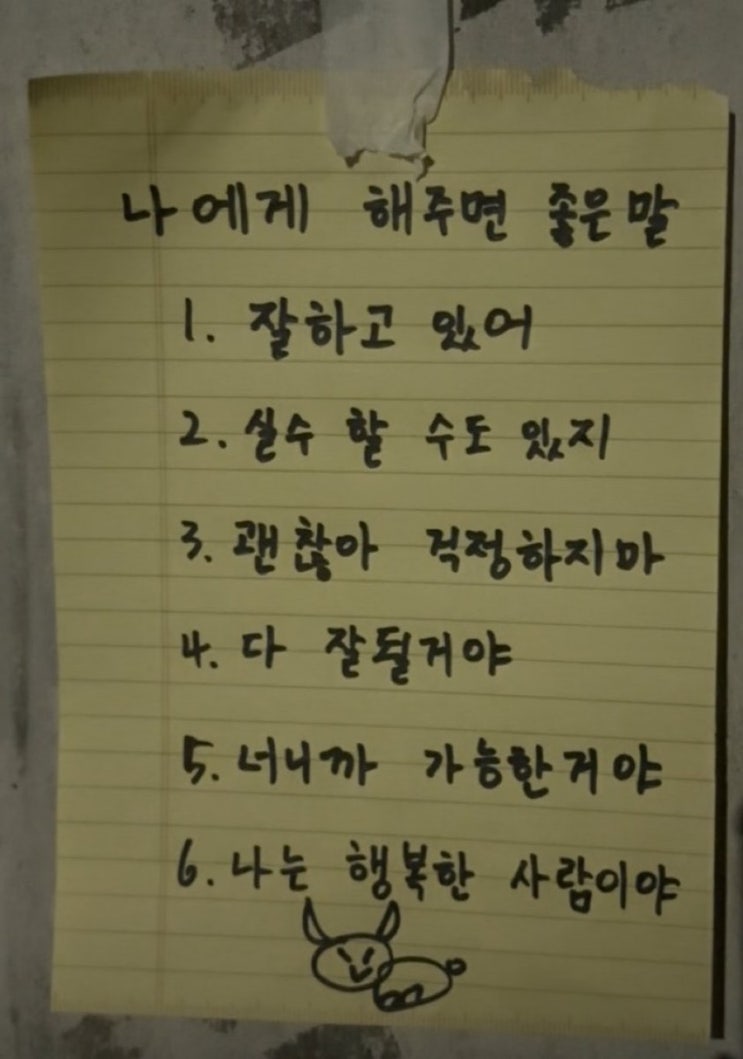 나에게 해주면 좋은말
1. 잘하고 있어
2. 실수 할 수도 있지
3. 괜찮아 걱정하지마
4. 다 잘될거야
5. 너니까 가능한거야
6. 나는 행복한 사람이야